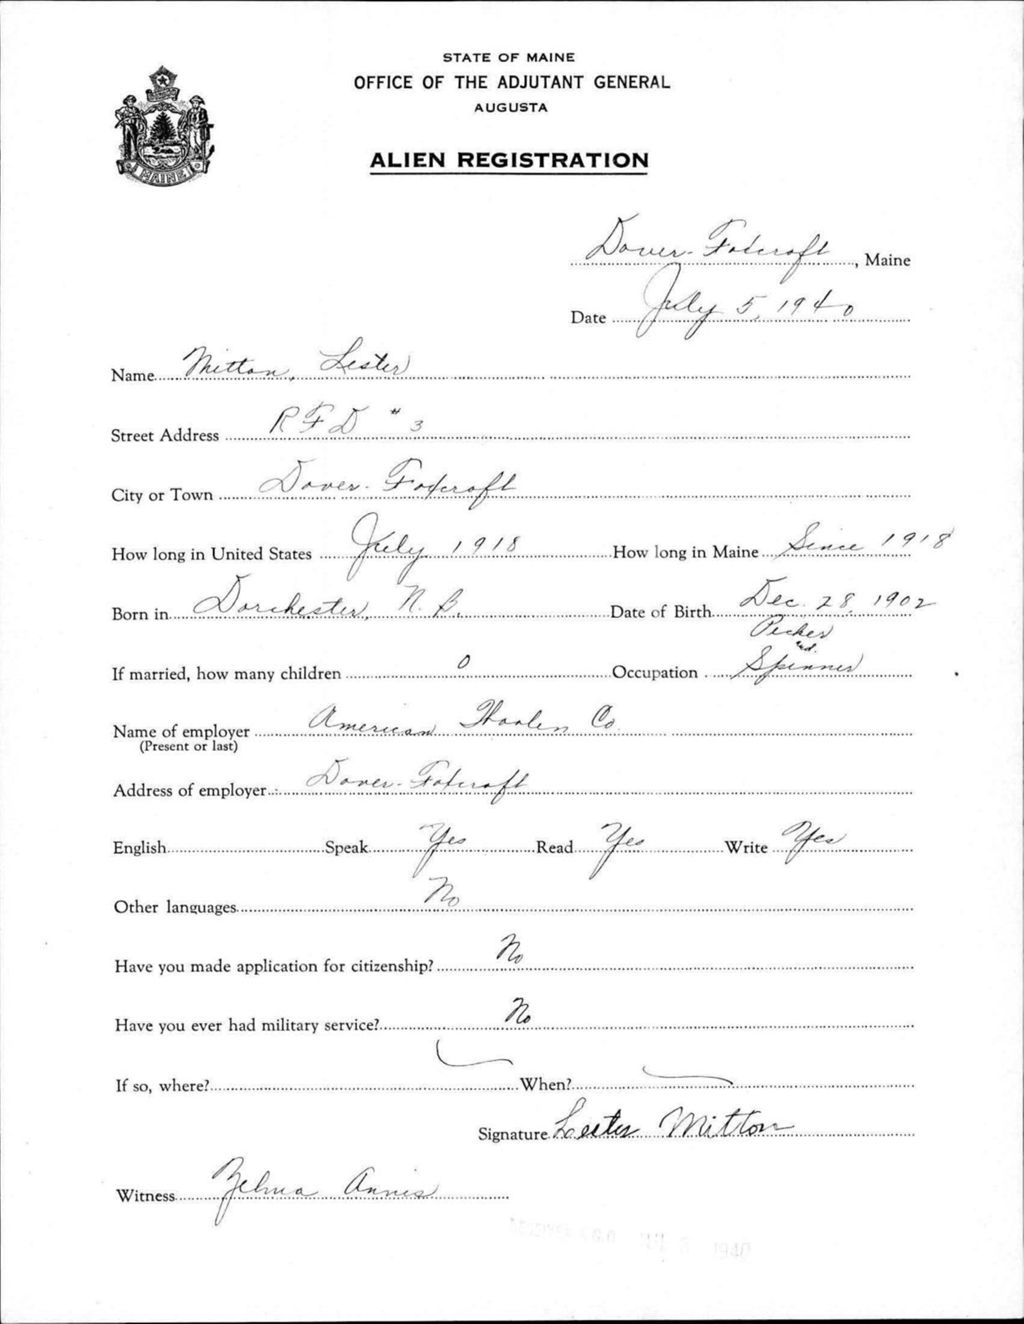 STATE OF MAINE
OFFICE OF THE ADJUTANT GENERAL
AUGUSTA
MAINE
ALIEN REGISTRATION
Dover-Foxcroft, Maine
Date July 5, 1940
Name Mitton, Lester
Street Address RFD #3
City or Town Dover-Foxcroft
How long in United States July 1918 How long in Maine Since 1918
Born in Dorchester, N.B. Date of Birth Dec. 28, 1902
Picker
and
If married, how many children 0 Occupation Spinner
Name of employer American Woolen Co.
(Present or last)
Address of employer Dover-Foxcroft
English Speak Yes Read Yes Write Yes
Other languages No
Have you made application for citizenship? No
Have you ever had military service? No
If so, where? When?
Signature Lester Mitton
Witness Zelma Annis
1940